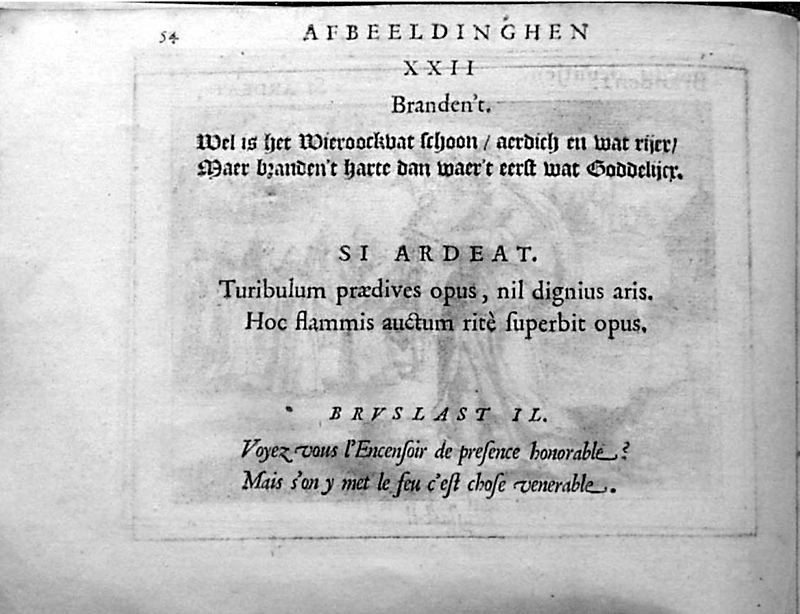 54 AFBEELDINGHEN
XXII
Branden't.
Wel is het Wieroockvat schoon / aerdich en wat rijer/
Maer branden't harte dan waer't eerst wat Goddelijcx.
SI ARDEAT.
Turibulum prædives opus, nil dignius aris.
Hoc flammis auctum ritè ſuperbit opus.
BRVSLAST IL.
Voyez vous l'Encenſoir de preſence honorable?
Mais s'on y met le feu c'eſt choſe venerable.